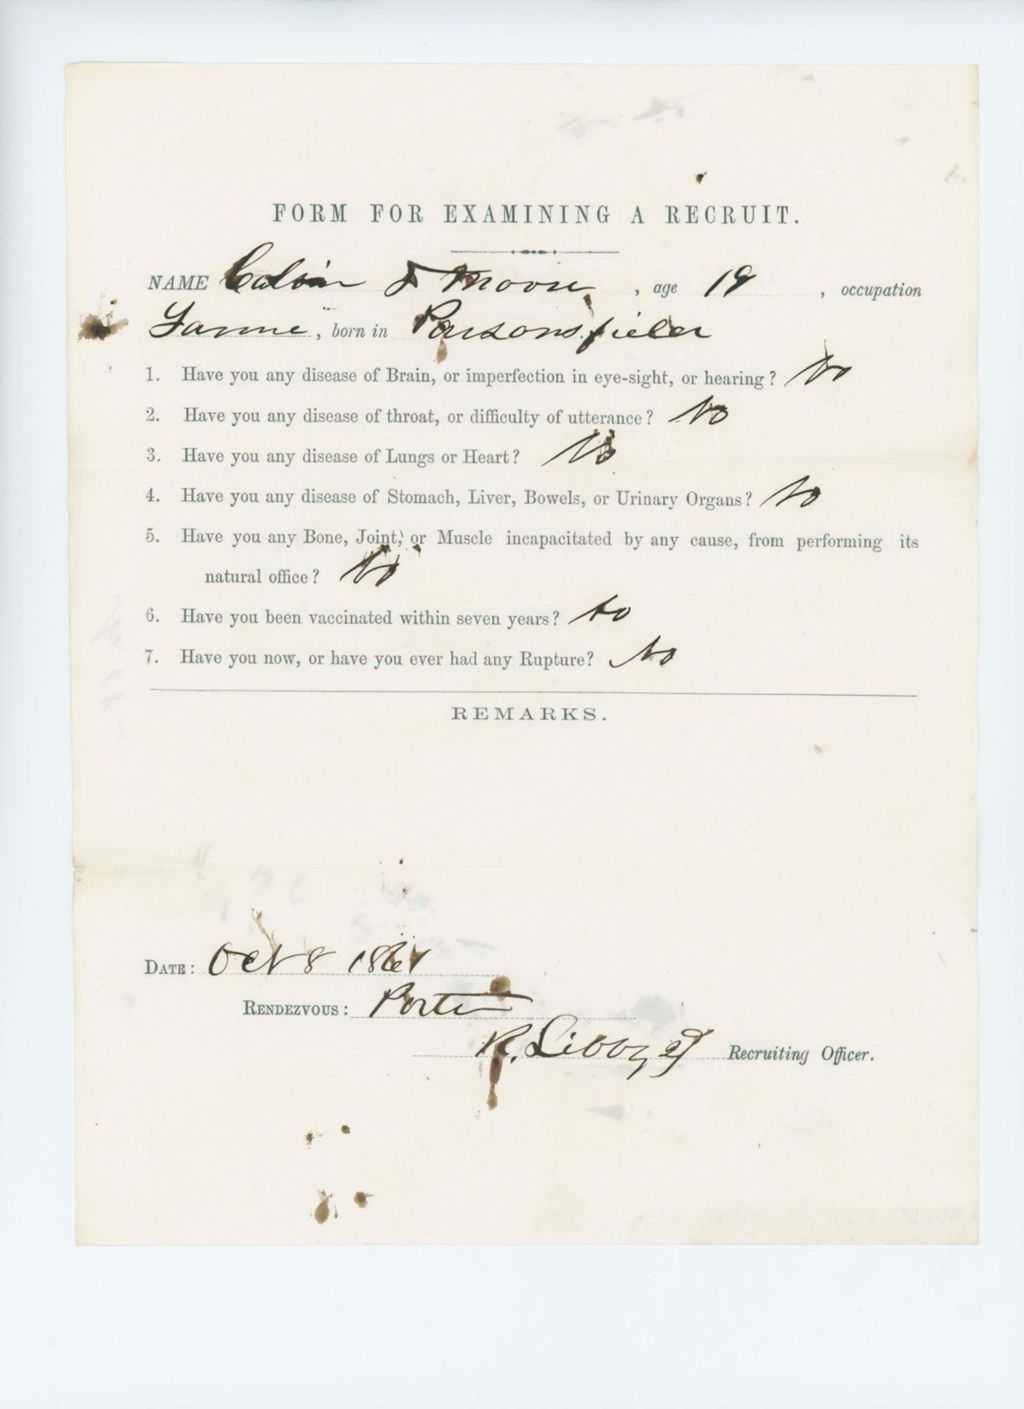 FORM FOR EXAMINING A RECRUIT.
NAME Calvin F Moore, age 19, occupation
Farme, born in Parsonsfield
1. Have you any disease of Brain, or imperfection in eye-sight, or hearing? No
2. Have you any disease of throat, or difficulty of utterance? No
3. Have you any disease of Lungs or Heart? No
4. Have you any disease of Stomach, Liver, Bowels, or Urinary Organs? No
5. Have you any Bone, Joint, or Muscle incapacitated by any cause, from performing its
natural office? No
6. Have you been vaccinated within seven years? No
7. Have you now, or have you ever had any Rupture? No
REMARKS.
DATE: Oct 8 1861
RENDEZVOUS: Porter
R. Libby Recruiting Officer.